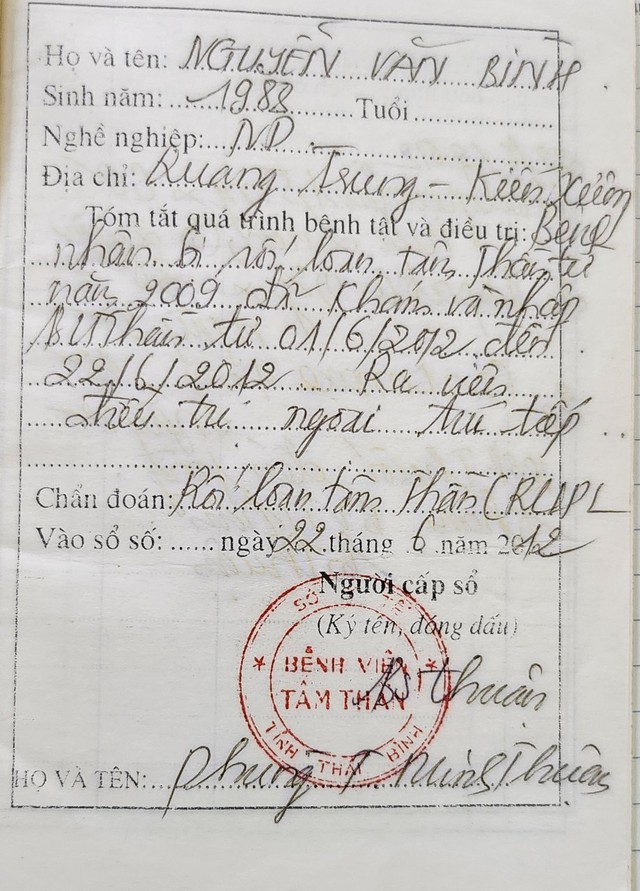 Họ và tên: NGUYỄN VĂN BÌNH
Sinh năm: 1988 Tuổi
Nghề nghiệp: ND
Địa chỉ: Quang Trung - Kiến Xương
Tóm tắt quá trình bệnh tật và điều trị: Bệnh
nhân bị rối loạn tâm thần từ
năm 2009 đã khám và nhập
từ 01/6/2012 đến
22/6/2012 Ra viện
điều trị ngoại trú tiếp
Chẩn đoán: Rối loạn tâm thần (
Vào sổ số: ngày 22 tháng 6 năm 2012
Người cấp sổ
(Ký tên, đóng dấu)
SỞ Y TẾ
BỆNH VIỆN
TÂM THẦN
TỈNH THÁI BÌNH
BS Thuân
HỌ VÀ TÊN: Phùng T. Minh Thuân